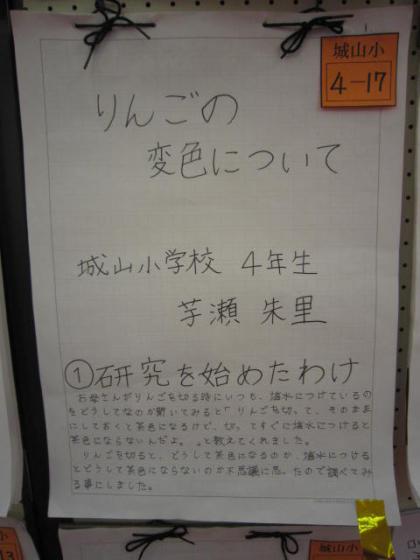 城山小
4-17
りんごの
変色について
城山小学校 4年生
芋瀬 朱里
①研究を始めたわけ
お母さんがりんごを切る時にいつも、塩水につけているの
をどうしてなのか聞いてみると「りんごを切って、そのまま
にしておくと茶色になるけど、切ってすぐに塩水につけると
茶色にならないんだよ。」と教えてくれました。
りんごを切ると、どうして茶色になるのか、塩水につける
とどうして茶色にならないのか不思議に思ったので調べてみ
る事にしました。